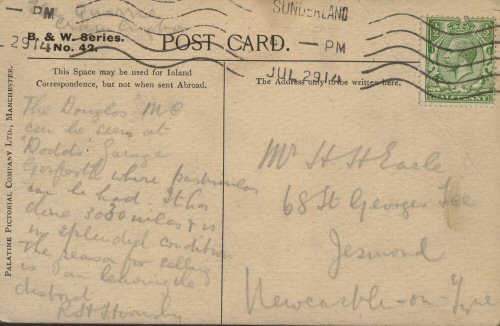 The Quarrie
Cramlington
B. & W. Series.
No. 42.
POST CARD.
PM
2914
SUNDERLAND
- PM
JUL 29 14
This Space may be used for Inland
Correspondence, but not when sent Abroad.
The Address only to be written here.
PALATINE PICTORIAL COMPANY LTD., MANCHESTER.
The Douglas MC
can be seen at
Dodds Garage
Gosforth where particulars
can be had. It has
done 3030 miles & is
in splendid condition
The reason for selling
is I am leaving the
district
R St Hornsby
Mr H H Earle
68 St Georges Tce
Jesmond
Newcastle-on-Tyne